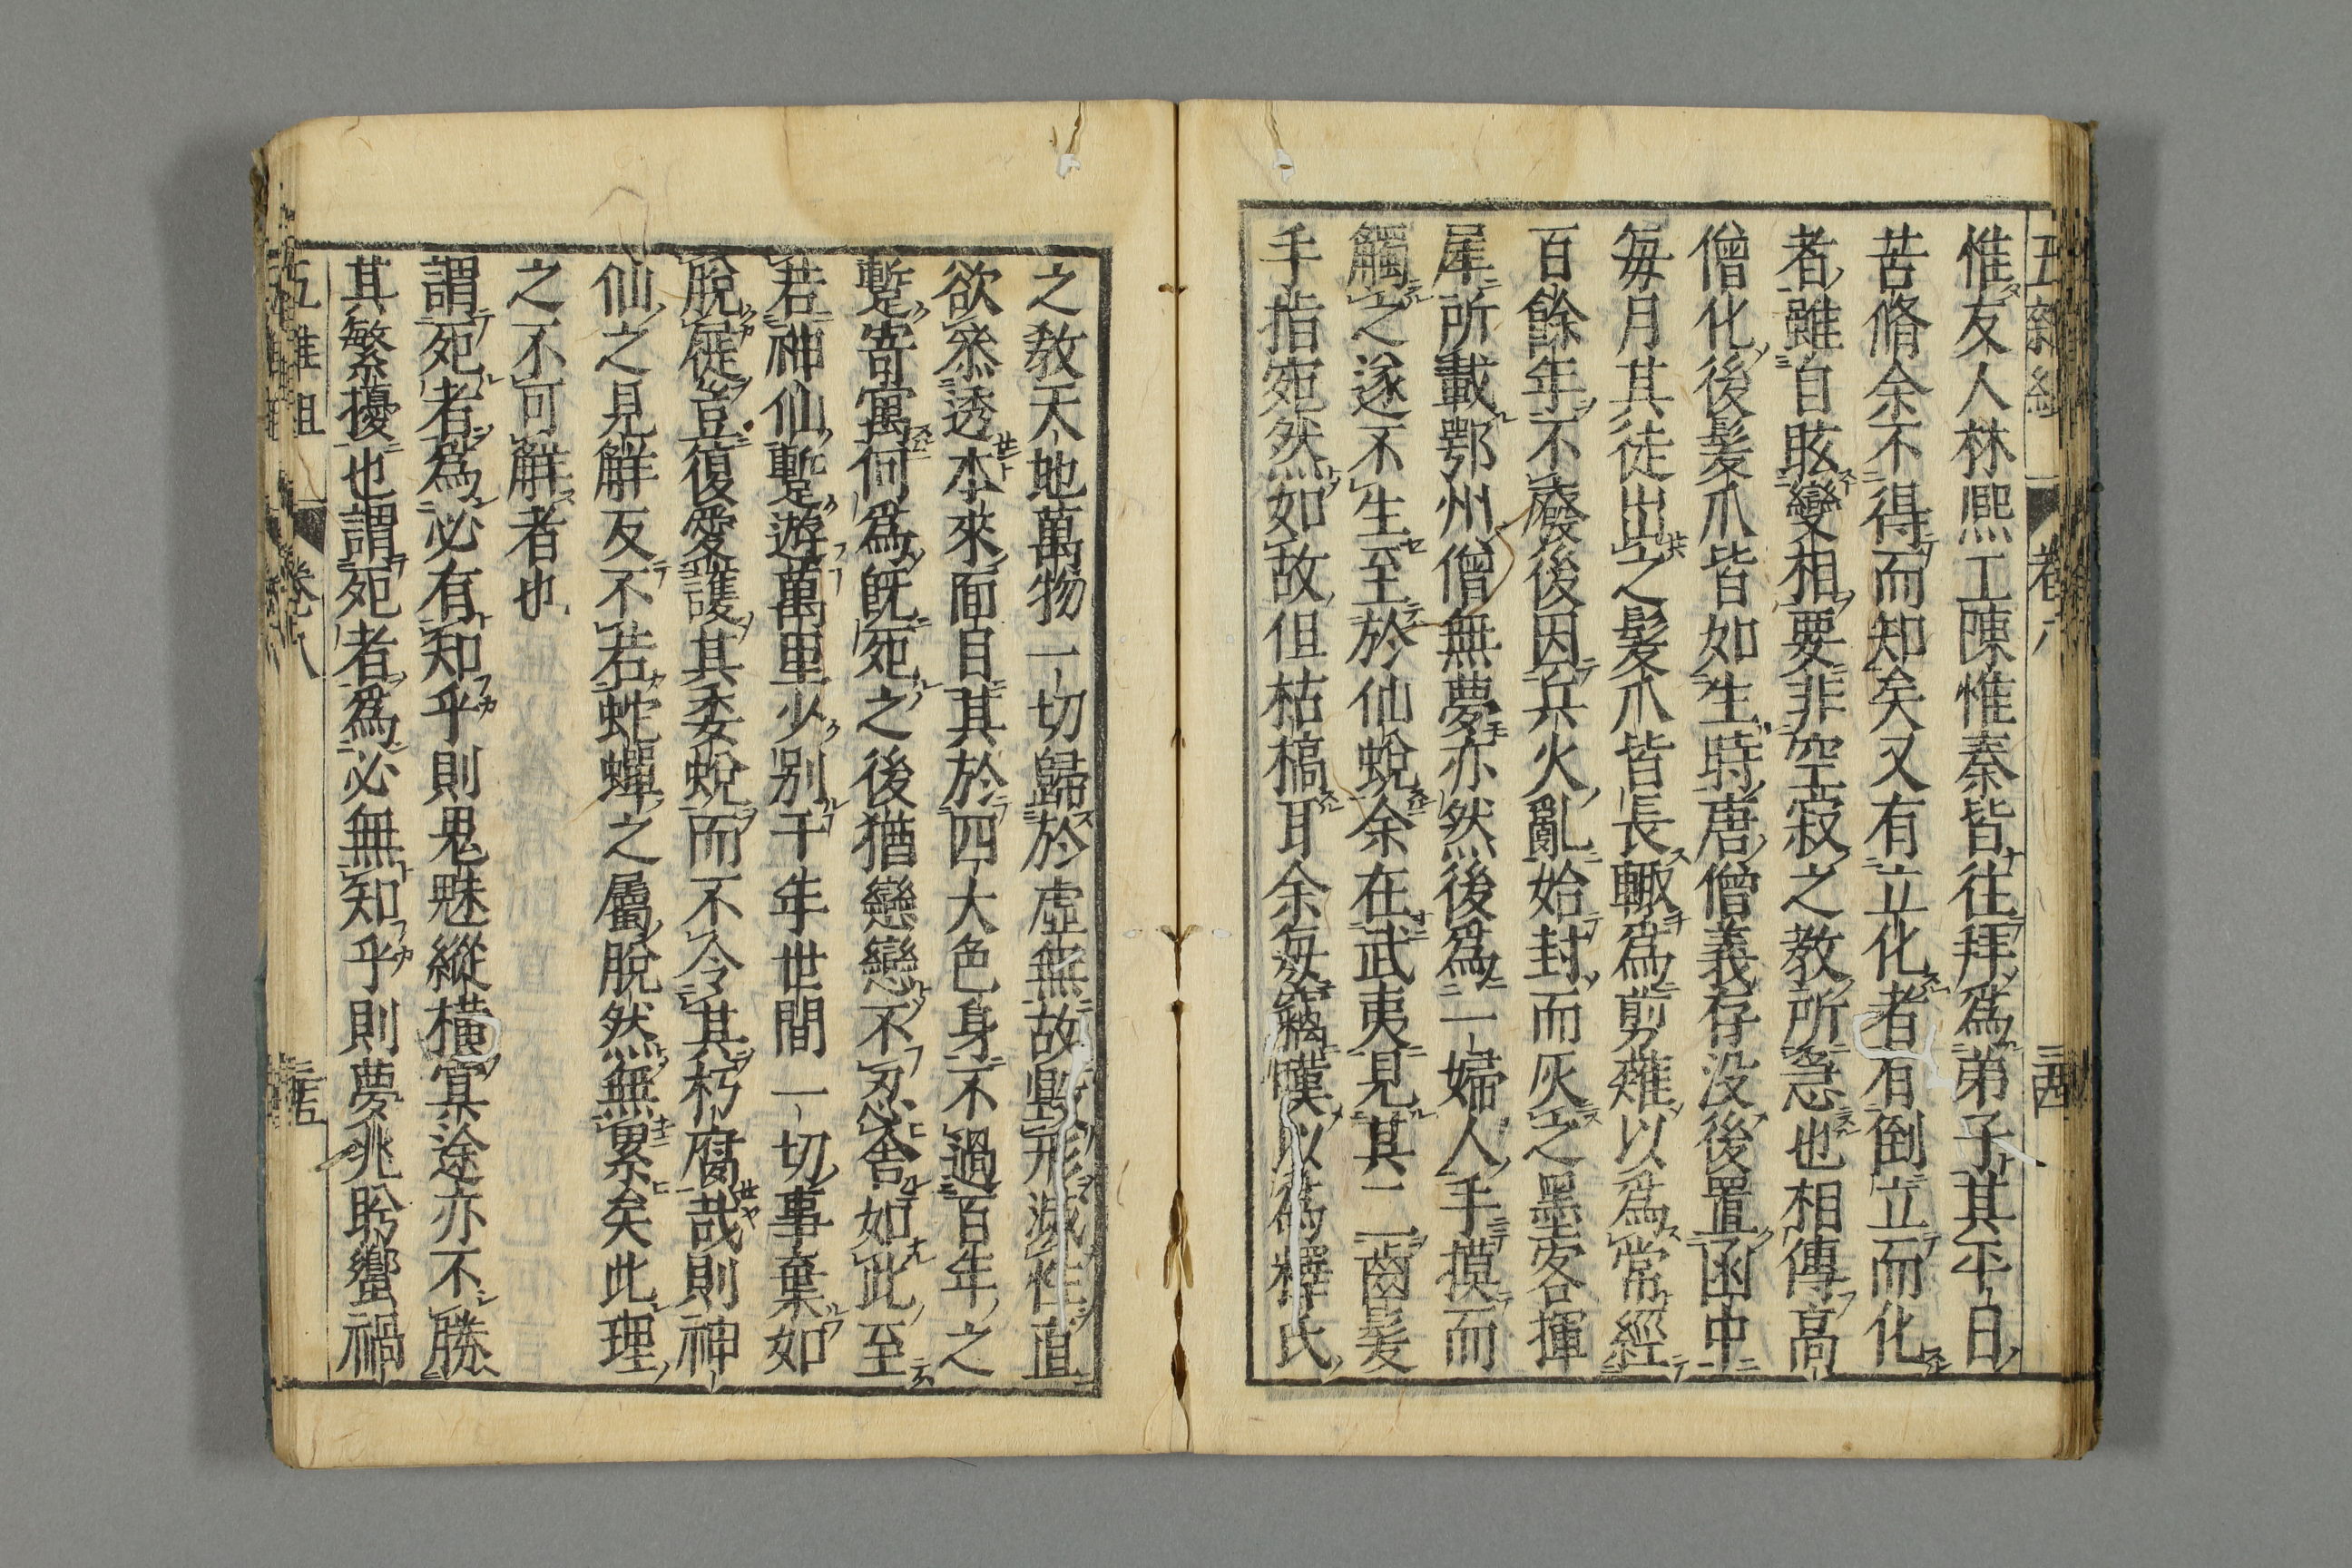 五雜組 卷八 三四
惟友人林熈工陳惟秦皆往拜爲弟子其平日
苦脩余不得而知矣又有立化者有倒立而化
者雖自眩變相要非空寂之教所急也相傳高
僧化後髮爪皆如生時唐僧義存没後置函中
每月其徒出之髮爪皆長輙爲剪薙以爲常經
百餘年不廢後因兵火亂始封而灰之墨客揮
犀所載鄂州僧無夢亦然後爲一婦人手摸而
觸之遂不生至於仙蛻余在武夷見其二齒髮
手指宛然如故但枯槁耳余每竊嘆以爲釋氏
之教天地萬物一切歸於虛無故毀形滅性直
欲叅透本來面目其於四大色身不過百年之
蹔寄寓何爲旣死之後猶戀戀不忍舍如此至
若神仙蹔遊萬里少别千年世間一切事棄如
脫屣豈復愛護其委蛻而不令其朽腐哉則神
仙之見解反不若蛇蟬之屬脫然無累矣此理
之不可解者也
謂死者爲必有知乎則鬼魅縱橫冥途亦不勝
其繁擾也謂死者爲必無知乎則夢兆肹蠁禍
五雜組 卷八